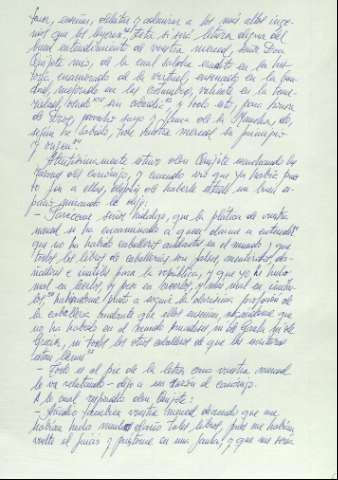 enseñen, deleiten y admiren a los más altos inge-
nios que los leyeren. Esta sí será letura digna del
buen entendimiento de vuestra merced, señor Don
Quijote mío, de la cual saldrá erudito en la his-
toria, enamorado de la virtud, enseñado en la bon-
dad, mejorado en las costumbres, valiente en la teme-
sin cobardía y todo esto, para honra
de Dios, provecho suyo y fama de la Mancha, do,
según he sabido, trae vuestra merced su principio
y origen.
Atentísimamente estuvo don Quijote escuchando las
razones del canónigo, y cuando vio que ya había pues-
to fin a ellas, después de haberle estado un buen es-
pacio mirando le dijo:
- Paréceme, señor hidalgo, que la plática de vuestra
merced se ha encaminado a querer darme a entender
que no ha habido caballeros andantes en el mundo y que
todos los libros de caballerías son falsos, mentirosos, da-
ñadores e inútiles para la república, y que yo he hecho
mal en leerlos, y peor en creerlos, y más mal en imitar-
los, habiéndome puesto a seguir la durísima profesión de
la caballería andante que ellos enseñan, negándome que
no ha habido en el mundo Amadises, ni de Gaula ni de
Grecia, ni todos los otros caballeros de que las escrituras
están llenas
- Todo es al pie de la letra como vuestra merced
lo va relatando - dijo a esta sazón el canónigo.
A lo cual respondió don Quijote:
- Añadió también vuestra merced diciendo que me
habían hecho mucho daño tales libros, pues me habían
vuelto el juicio y puéstome en una jaula, y que me sería